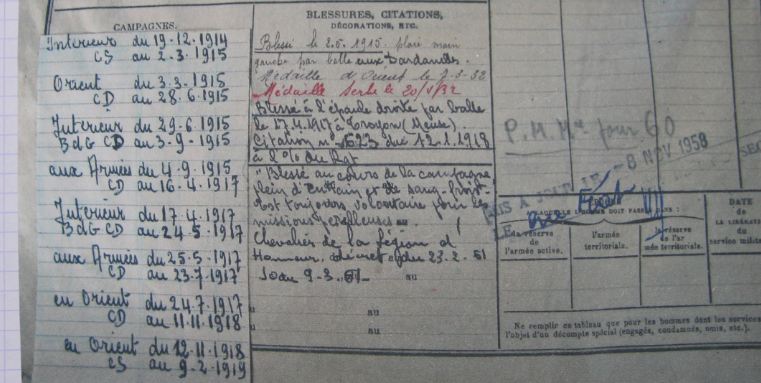 CAMPAGNES.
Intérieur du 19-12-1914
CS au 2-3-1915
Orient du 3-3-1915
CD au 28-6-1915
Intérieur du 29-6-1915
BdG CD au 3-9-1915
aux Armées du 4-9-1915
CD au 16-4-1917
Intérieur du 17-4-1917
BdG CD au 24-5-1917
aux Armées du 25-5-1917
CD au 23-7-1917
en Orient du 24-7-1917
CD au 11-11-1918
en Orient du 12-11-1918
CS au 9-2-1919
BLESSURES, CITATIONS,
DÉCORATIONS, ETC.
Blessé le 2.5.1915 plaie main
gauche par balle aux Dardanelles.
Médaille d'Orient le
Médaille Serbe le 20/V/32
Blessé à l'épaule droite par balle
le 17.4.1917 à Troyon (Meuse).
Citation n° 523 du 12.1.1918
à l'O/ du Rgt
"Blessé au cours de la campagne,
plein d'entrain et de sang-froid
est toujours volontaire pour les
missions périlleuses" au
Chevalier de la légion d'
Honneur, décret du 23.2.51
JO du 9-3-51 au
au
au
P.M. pour 60
MIS A JOUR LE -8 NOV 1958
PASSER DANS :
la réserve
de
l'armée active.
l'armée
territoriale.
la réserve
de l'ar
mée territoriale.
DATE
de
LA LIBÉRAT
du
service milit
Ne remplir ce tableau que pour les hommes dont les services
l'objet d'un décompte spécial (engagés, condamnés, omis, etc.).